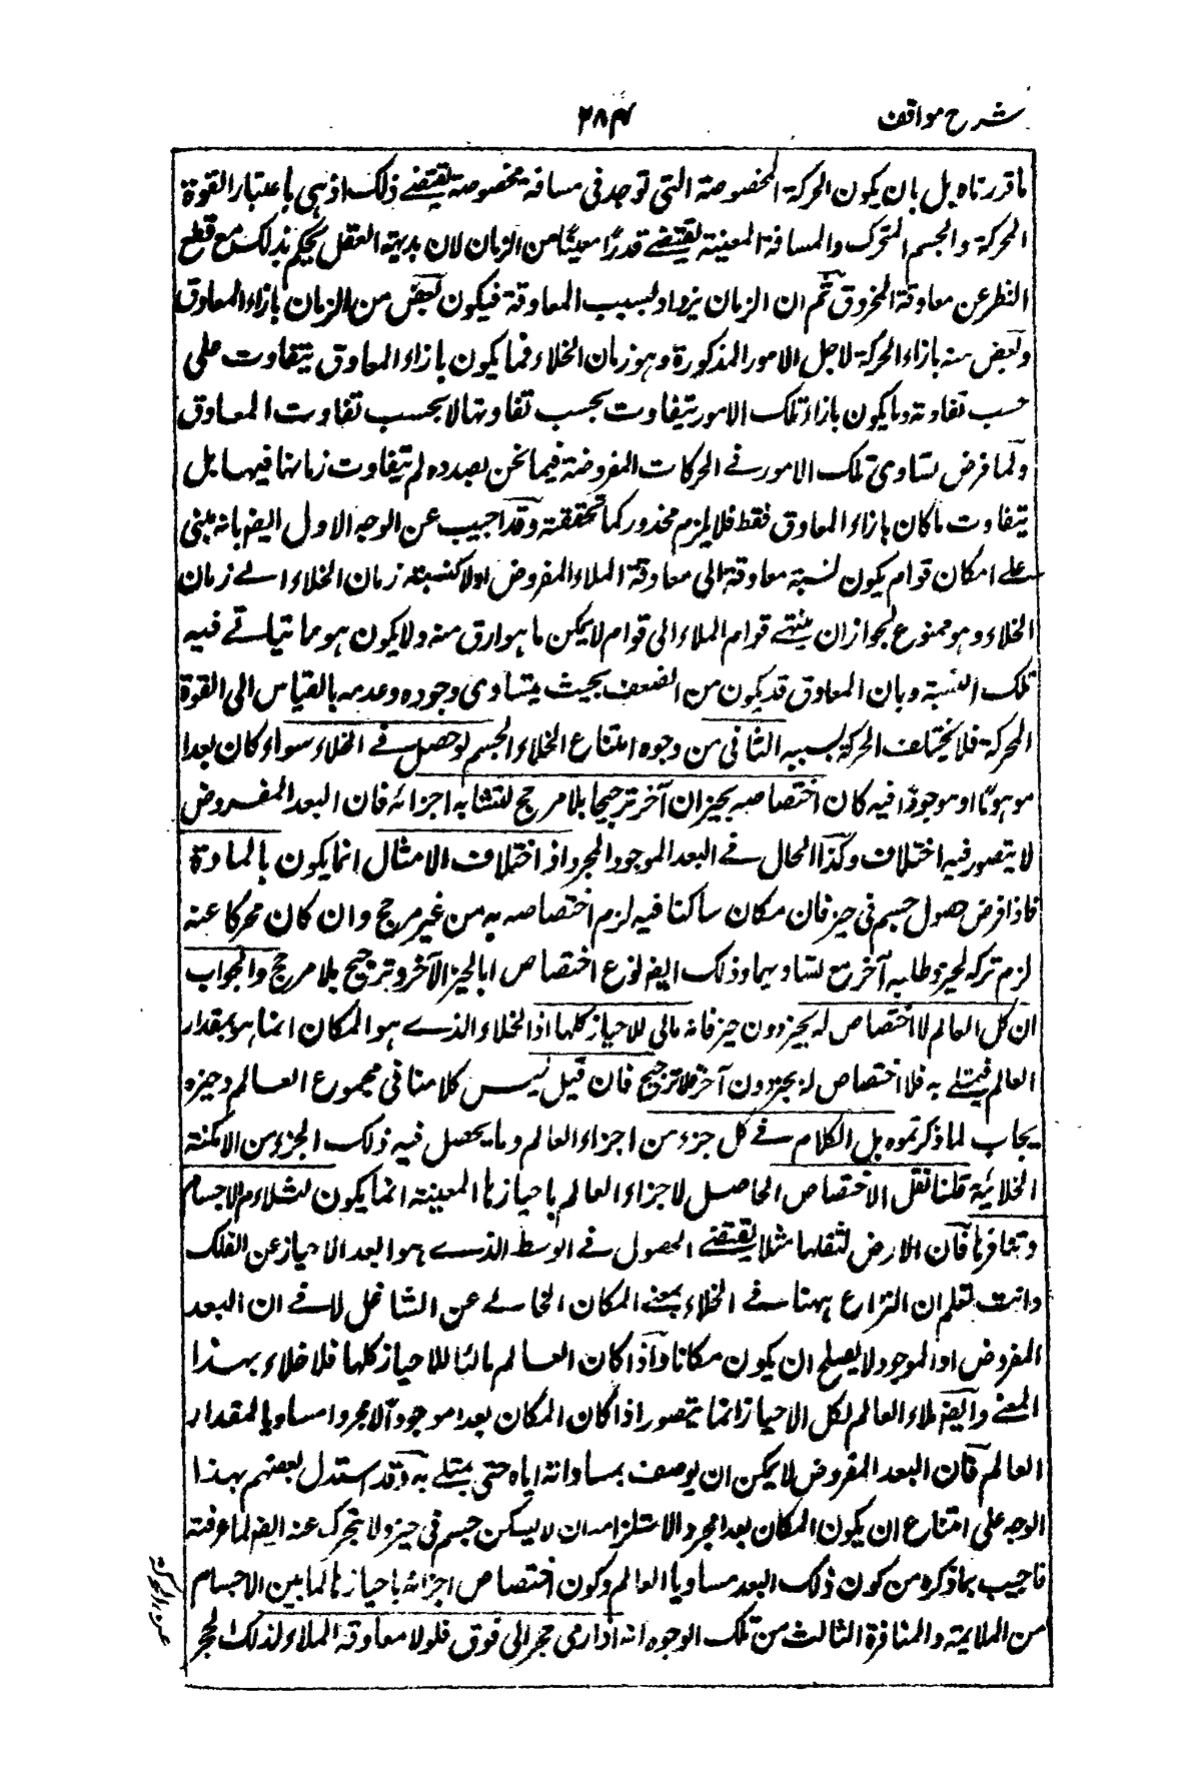 شرح مواقف
۲۸۴
ما قررناه بل بان يكون الحركة المخصوصة التى توجد فى مسافة مخصوصة يقتضے ذلك اذ هى باعتبار القوة
المحركة والجسم المتحرك والمسافة المعينة يقتضے قدرًا معينًا من الزمان لان بديهة العقل يحكم بذلك مع قطع
النظر عن معاوقة المخروق ثم ان الزمان يزداد بسبب المعاوقة فيكون بعض من الزمان بازاء المعاوق
وبعض منه بازاء الحركة لاجل الامور المذكورة وهو زمان الخلاء فما يكون بازاء المعاوق يتفاوت على
حسب تفاوته وما يكون بازاء تلك الامور يتفاوت بحسب تفاوتها لا بحسب تفاوت المعاوق
ولما فرض تساوى تلك الامور فے الحركات المفروضة فيما نحن بصدده لم يتفاوت زمانها فيها بل
يتفاوت ما كان بازاء المعاوق فقط فلا يلزم محذور كما تحققته وقد اجيب عن الوجه الاول ايضا بانه مبنى
علے امكان قوام يكون نسبة معاوقته الى معاوقة الملاء المفروض اولا كنسبته زمان الخلاء الے زمان
الخلاء وهو ممنوع لجواز ان ينتهے قوام الملاء الى قوام لا يمكن ما هو ارق منه ولا يكون هو مما يتاتے فيه
تلك النسبة وبان المعاوق قد يكون من الضعف بحيث يتساوى وجوده وعدمه بالقياس الى القوة
المحركة فلا يختلف الحركة بسببه الثانى من وجوه امتناع الخلاء الجسم لو حصل فے الخلاء سواء كان بعدا
موهومًا او موجودًا فيه كان اختصاصه بحيز ان آخر ترجيحا بلا مرجح لتشابه اجزائه فان البعد المفروض
لا يتصور فيه اختلاف وكذا الحال فے البعد الموجود المجرد اذ اختلاف الامثال انما يكون بالمادة
فاذا فرض حصول جسم فى حيز فان مكان ساكنا فيه لزم اختصاصه به من غير مرجح وان كان محركا عنه
لزم تركه لحيز وطلبه آخر مع تساويهما وذلك ايضا نوع اختصاص ابالحيز الآخر وترجيح بلا مرجح والجواب
ان كل العالم لا اختصاص له بحيز دون حيز فانه مالى للاحياز كلها اذ الخلاء الذے هو المكان انما هو بمقدار
العالم فيمتلے به فلا اختصاص له بحيز دون آخر فلا ترجيح فان قيل ليس كلامنا فى مجموع العالم وحيزه
يجاب لما ذكرتموه بل الكلام فے كل جزء من اجزاء العالم وما يحصل فيه ذلك الجزء من الامكنة
الخلائية قلنا نقل الاختصاص الحاصل لاجزاء العالم باحيازها المعينة انما يكون لتلاءم الاجسام
وتنافرها فان الارض لثقلها مثلا يقتضے الحصول فے الوسط الذے هو ابعد الاحياز عن الفلك
وانت تعلم ان النزاع ههنا فے الخلاء بمعنے المكان الخالے عن الشاغل لا فے ان البعد
المفروض او الموجود لا يصلح ان يكون مكانا واذا كان العالم مالئا للاحياز كلها فلا خلاء بهذا
المعنے وايضا ملاء العالم لكل الاحياز انما يتصور اذا كان المكان بعدا موجودًا مجردا مساويا لمقدار
العالم فان البعد المفروض لا يمكن ان يوصف بمساواته اياه حتى يمتلے به وقد استدل بعضهم بهذا
الوجه على امتناع ان يكون المكان بعدا مجردا لاستلزامه ان لا يسكن جسم فى حيز ولا يتحرك عنه ايضا لما عرفته
فاجيب بما ذكره من كون ذلك البعد مساويا العالم وكون اختصاص اجزائه باحيازها لما بين الاجسام
من الملايمة والمنافرة الثالث من تلك الوجوه انه اذا رمى حجر الى فوق فلولا معاوقة الملاء لذلك الحجر